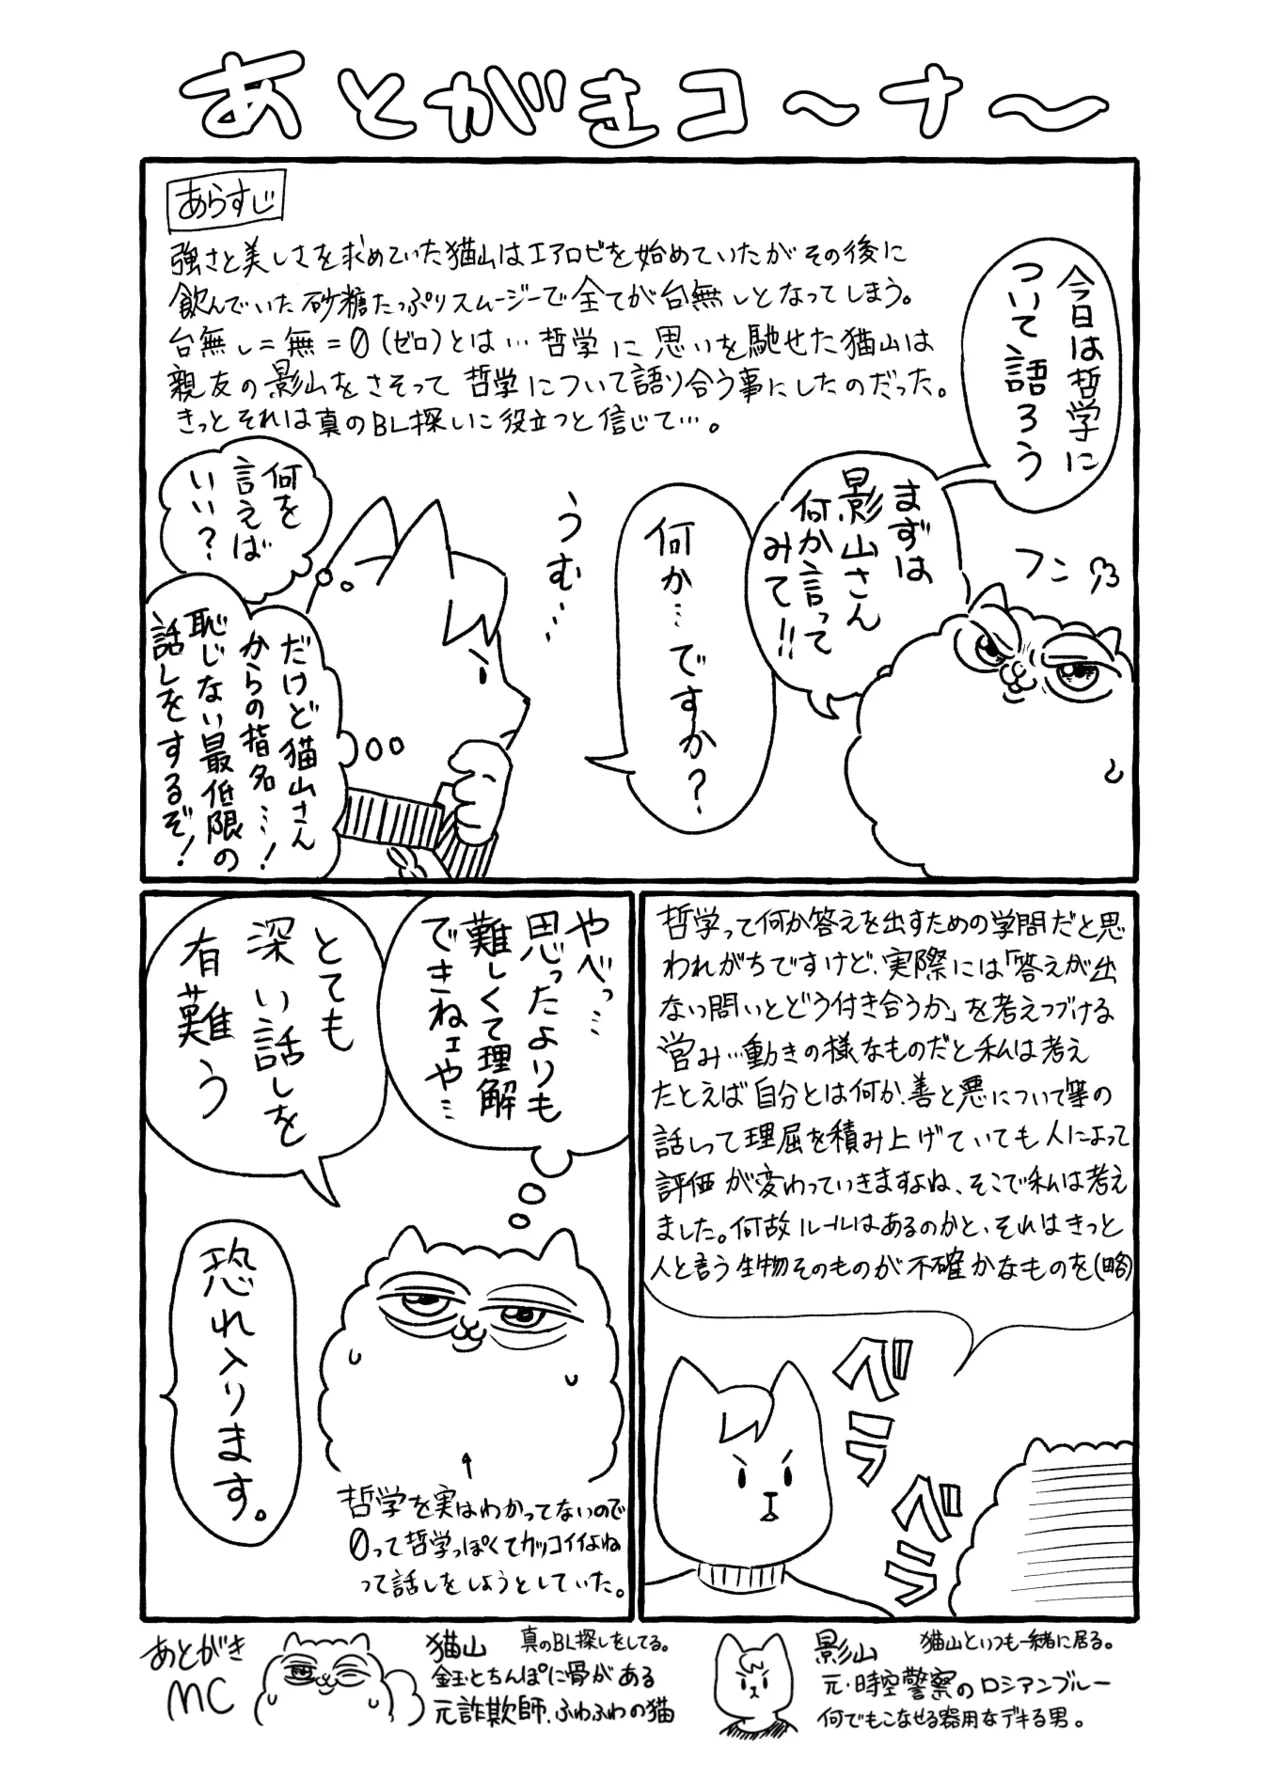 あとがきコ〜ナ〜
あらすじ
強さと美しさを求めていた猫山はエアロビを始めていたがその後に
飲んでいた砂糖たっぷりスムージーで全てが台無しとなってしまう。
台無し=無=0(ゼロ)とは…哲学に思いを馳せた猫山は
親友の影山をさそって哲学について語り合う事にしたのだった。
きっとそれは真のBL探しに役立つと信じて…。
今日は哲学に
ついて語ろう
まずは
影山さん
何か言って
みて!!
フンッ
何か…ですか?
うむ…
何を
言えば
いい?
だけど猫山さん
からの指名…!
恥じない最低限の
話しをするぞ!
哲学って何か答えを出すための学問だと思
われがちですけど、実際には「答えが出
ない問いとどう付き合うか」を考えつづける
営み…動きの様なものだと私は考え
たとえば自分とは何か、善と悪について等の
話しって理屈を積み上げていても人によって
評価が変わっていきますよね、そこで私は考え
ました。何故ルールはあるのかと、それはきっと
人と言う生物そのものが不確かなものを(略)
ベラ
ベラ
やべっ…
思ったよりも
難しくて理解
できねェや…
とても
深い話しを
有難う
恐れ入ります。
哲学を実はわかってないので
0って哲学っぽくてカッコイイよね
って話しをしようとしていた。
あとがき
MC
猫山 真のBL探しをしてる。
金玉とちんぽに骨がある
元詐欺師、ふわふわの猫
影山 猫山といつも一緒に居る。
元・時空警察のロシアンブルー
何でもこなせる器用なデキる男。